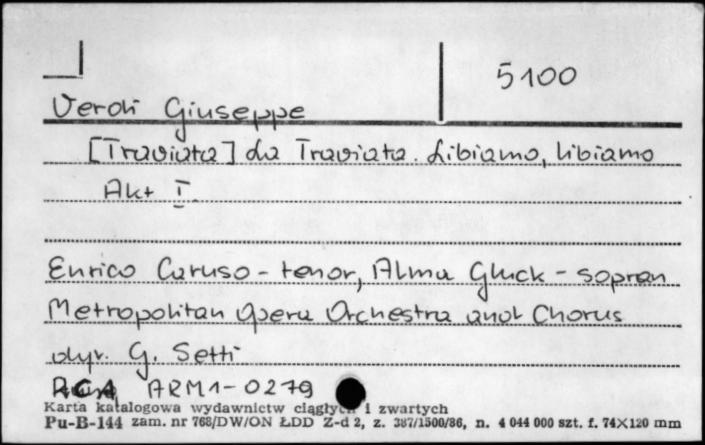 5100
Verdi Giuseppe
[Traviata] La Traviata. Libiamo, libiamo
Akt I.
Enrico Caruso - tenor, Alma Gluck - sopran
Metropolitan Opera Orchestra and Chorus
dyr. G. Setti
RCA ARM1-0279
Karta katalogowa wydawnictw ciągłych i zwartych
Pu-B-144 zam. nr 768/DW/ON ŁDD Z-d 2, z. 387/1500/86, n. 4 044 000 szt. f. 74X120 mm